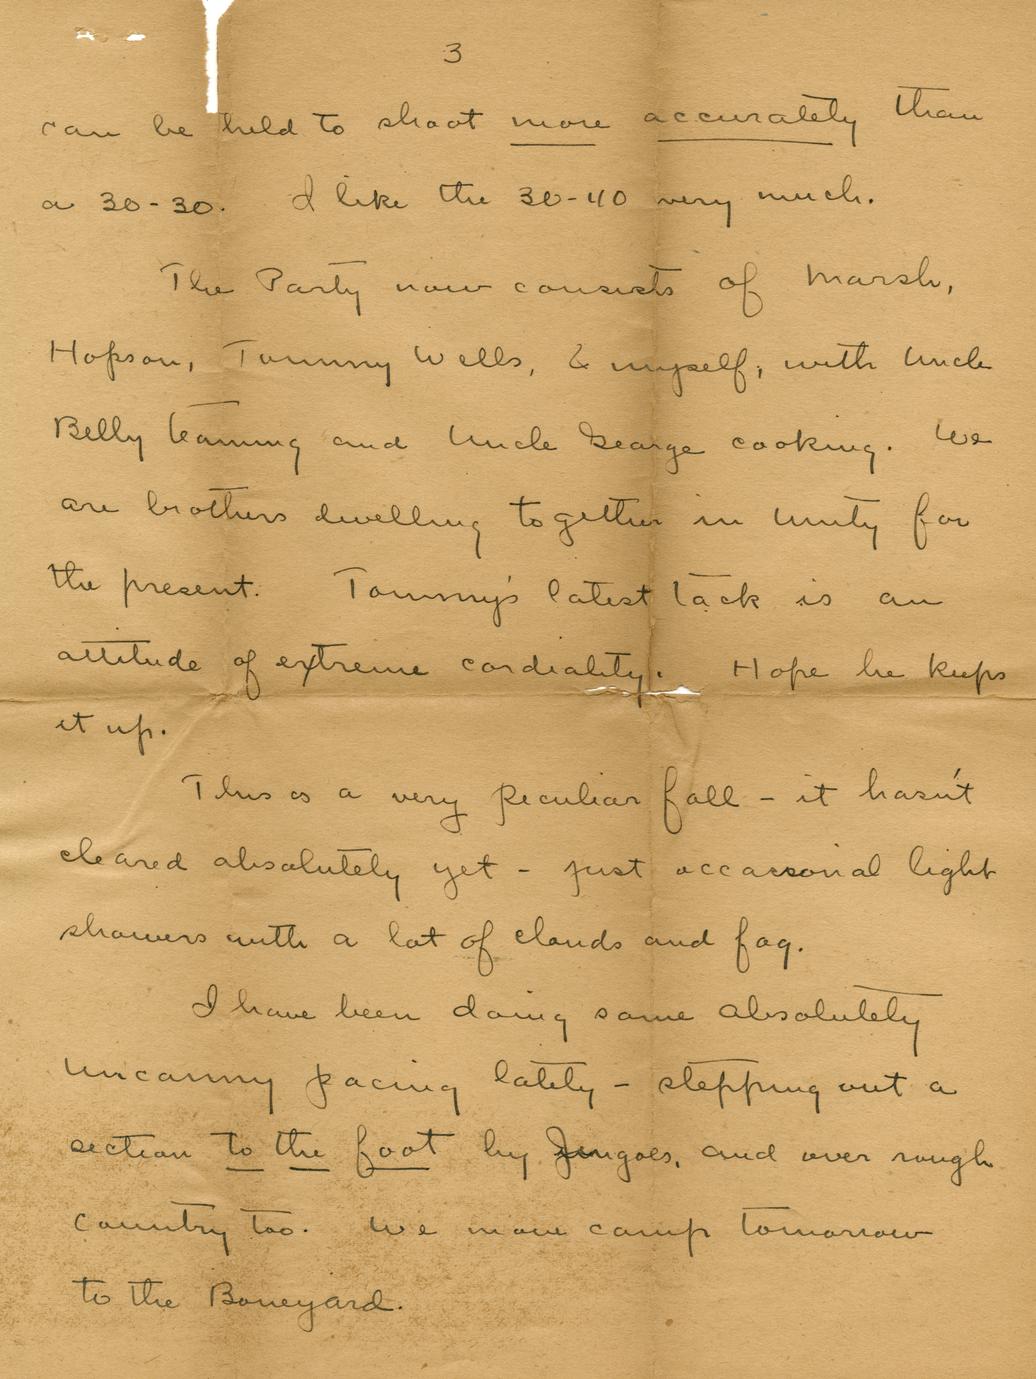 3
can be held to shoot more accurately than
a 30-30. I like the 30-40 very much.
The Party now consists of Marsh,
Hopson, Tommy Wells, & myself, with Uncle
Billy teaming and Uncle George cooking. We
are brothers dwelling together in unity for
the present. Tommy's latest tack is an
attitude of extreme cordiality. Hope he keeps
it up.
This is a very peculiar fall - it hasn't
cleared absolutely yet - just occasional light
showers with a lot of clouds and fog.
I have been doing some absolutely
uncanny pacing lately - stepping out a
section to the foot by Jingoes, and over rough
country too. We move camp tomorrow
to the Boneyard.